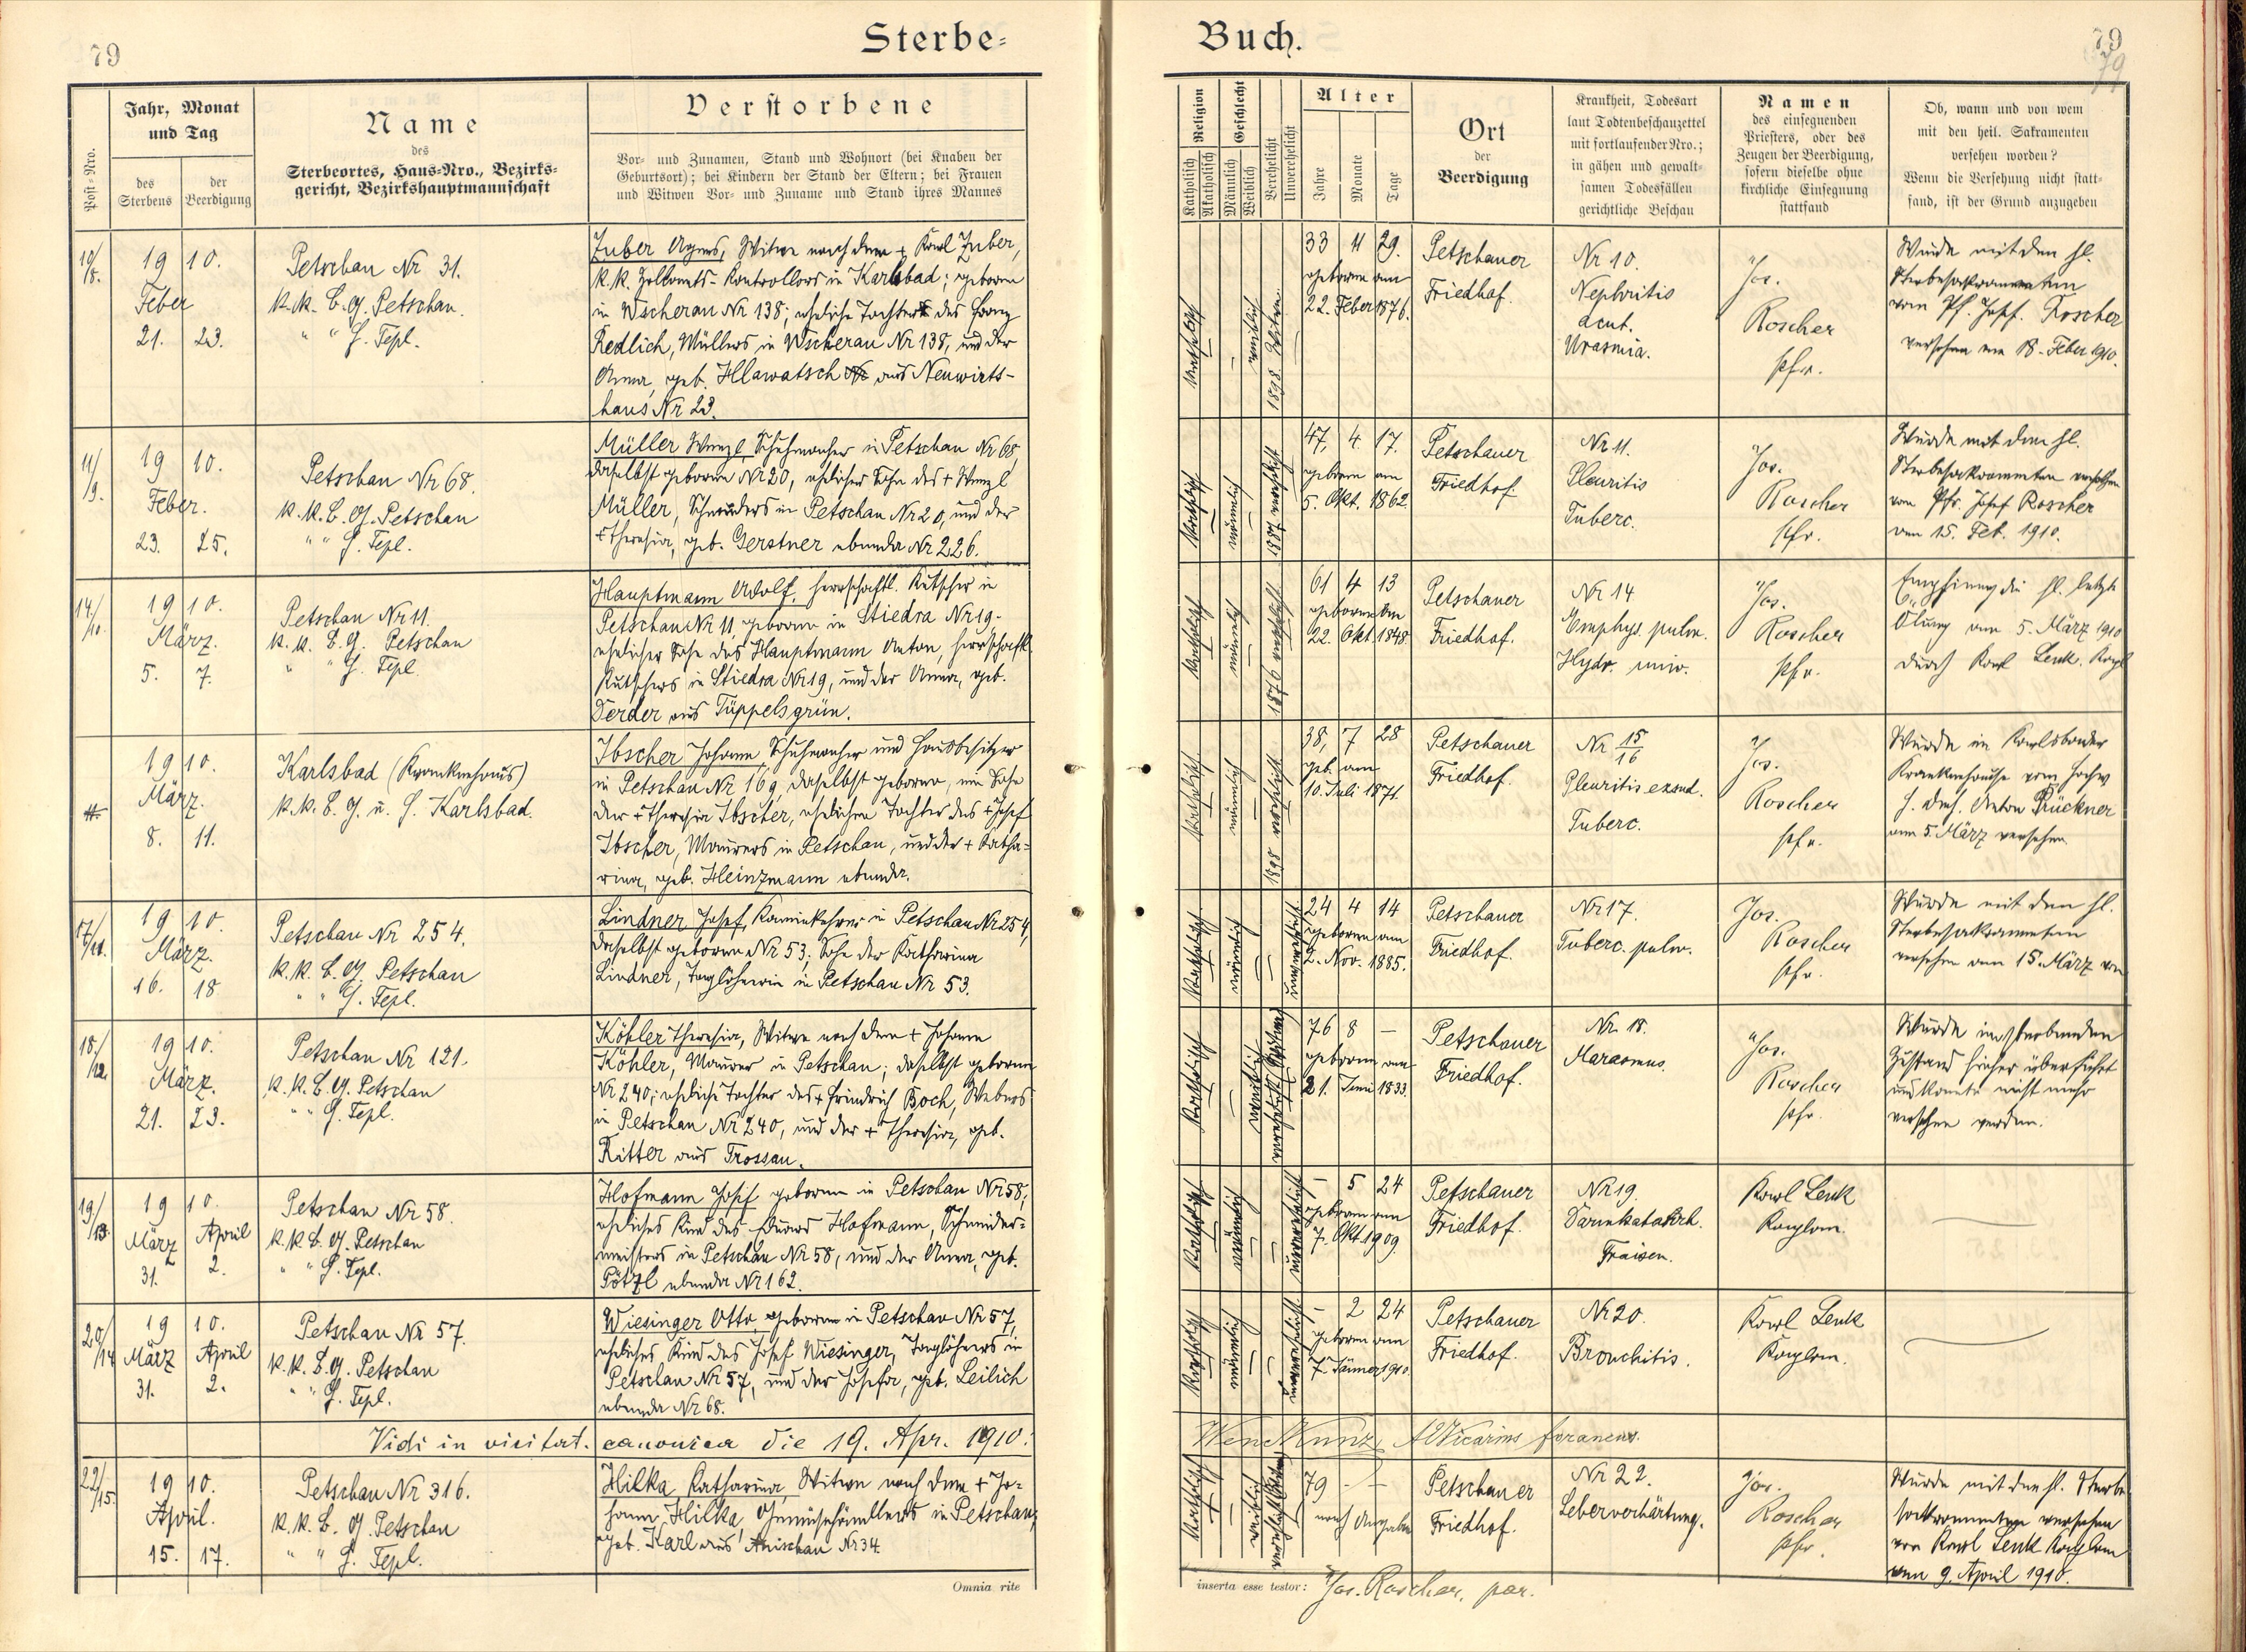 79
Sterbe-
Buch.
79
79
Post-Nro.
Jahr, Monat
und Tag
des
Sterbens
der
Beerdigung
Name
des
Sterbeortes, Haus-Nro., Bezirks-
gericht, Bezirkshauptmannschaft
Verstorbene
Vor- und Zunamen, Stand und Wohnort (bei Knaben der
Geburtsort); bei Kindern der Stand der Eltern; bei Frauen
und Witwen Vor- und Zuname und Stand ihres Mannes
Religion
Katholisch
Akatholisch
Geschlecht
Männlich
Weiblich
Verehelicht
Unverehelicht
Alter
Jahre
Monate
Tage
Ort
der
Beerdigung
Krankheit, Todesart
laut Todtenbeschauzettel
mit fortlaufender Nro.;
in gähen und gewalt-
samen Todesfällen
gerichtliche Beschau
Namen
des einsegnenden
Priesters, oder des
Zeugen der Beerdigung,
sofern dieselbe ohne
kirchliche Einsegnung
stattfand
Ob, wann und von wem
mit den heil. Sakramenten
versehen worden?
Wenn die Versehung nicht statt-
fand, ist der Grund anzugeben
10/8.
19 10.
Feber
21. 23.
Petschau Nr 31.
k.k. B.G. Petschau.
" " H. Tepl.
Zuber Agnes, Witwe nach dem + Karl Zuber,
k.k. Zollamts-Kontrollors in Karlsbad; geboren
in Wscherau Nr 138; eheliche Tochter des Franz
Redlich, Müllers in Wscherau Nr 138, und der
Anna, geb. Hlawatsch aus Neuwirts-
haus Nr 23.
katholisch
weiblich
1898
33 11 29.
geboren am
22. Feber 1876.
Petschauer
Friedhof.
Nr 10.
Nephritis
acut.
Uraemia.
Jos.
Roscher
Pfr.
Wurde mit den hl.
Sterbesakramenten
vom Pf. Josef Roscher
versehen am 18. Feber 1910.
11/9.
19 10.
Feber.
23. 25.
Petschau Nr 68.
k.k. B.G. Petschau
" " H. Tepl.
Müller Wenzl, Schuhmacher in Petschau Nr 68,
daselbst geboren Nr 20, ehelicher Sohn des + Wenzl
Müller, Schneiders in Petschau Nr 20, und der
+ Theresia, geb. Gerstner ebenda Nr 226.
katholisch
männlich
1887 verehelicht
47, 4. 17.
geboren am
5. Okt. 1862.
Petschauer
Friedhof.
Nr 11.
Pleuritis
Tuberc.
Jos.
Roscher
Pfr.
Wurde mit den hl.
Sterbesakramenten versehen
vom Pfr. Josef Roscher
am 15. Feb. 1910.
14./10.
19 10.
März.
5. 7.
Petschau Nr 11.
k.k. B.G. Petschau
" " H. Tepl.
Hauptmann Adolf, herrschaftl. Kutscher in
Petschau Nr 11, geboren in Stiedra Nr 19.
ehelicher Sohn des Hauptmann Anton, herrschaftl.
Kutschers in Stiedra Nr 19, und der Anna, geb.
Derder aus Tüppelsgrün.
katholisch
männlich
1876 verehelicht
61 4 13
geboren am
22. Okt. 1848.
Petschauer
Friedhof.
Nr 14
Emphys. pulm.
Hydr. univ.
Jos.
Roscher
Pfr.
Empfing die hl. letzte
Ölung am 5. März 1910
durch Karl Lenk. Kapl
19 10.
März.
8. 11.
Karlsbad (Krankenhaus)
k.k. B.G. u. H. Karlsbad.
Ibscher Johann, Schuhmacher und Hausbesitzer
in Petschau Nr 169, daselbst geboren, ein Sohn
der + Theresia Ibscher, ehelichen Tochter des + Josef
Ibscher, Maurers in Petschau, und der + Katha-
rina, geb. Heinzmann ebenda.
katholisch.
männlich
1898 verehelicht
38, 7 28
geb. am
10. Juli 1871.
Petschauer
Friedhof.
Nr 15/16
Pleuritis exsud.
Tuberc.
Jos.
Roscher
Pfr.
Wurde im Karlsbader
Krankenhause vom hochw
H. Anton Brückner
am 5. März versehen.
17/11.
19 10.
März.
16. 18
Petschau Nr 254.
k.k. B.G. Petschau
" " H. Tepl.
Lindner Josef, Kaminkehrer in Petschau Nr 254,
daselbst geboren Nr 53; Sohn der Katharina
Lindner, Taglöhnerin in Petschau Nr 53.
katholisch.
männlich
unverehelicht
24 4 14
geboren am
2. Nov. 1885.
Petschauer
Friedhof.
Nr 17.
Tuberc. pulm.
Jos.
Roscher
Pfr.
Wurde mit den hl.
Sterbesakramenten
versehen am 15. März von
18./12.
19 10.
März.
21. 23.
Petschau Nr 121.
k.k. B.G. Petschau
" " H. Tepl.
Köhler Theresia, Witwe nach dem + Johann
Köhler, Maurer in Petschau; daselbst geboren
Nr 240; eheliche Tochter des + Friedrich Boch, Webers
in Petschau Nr 240, und der + Theresia, geb.
Ritter aus Trossau.
katholisch
weiblich
76 8 —
geboren am
21. Juni 1833.
Petschauer
Friedhof.
Nr. 18.
Marasmus
Jos.
Roscher
Pfr.
Wurde im sterbenden
Zustand hieher überführt
und konnte nicht mehr
versehen werden.
19/13.
19 10.
März April
31. 2.
Petschau Nr 58.
k.k. B.G. Petschau
" " H. Tepl.
Hofmann Josef, geboren in Petschau Nr 58,
eheliches Kind des Eduard Hofmann, Schneider-
meisters in Petschau Nr 58, und der Anna, geb.
Pötzl ebenda Nr 162.
katholisch
männlich
unverehelicht
- 5 24
geboren am
7. Okt. 1909.
Petschauer
Friedhof.
Nr 19.
Darmkatarrh.
Fraisen.
Karl Lenk
Kaplan.
20/14
19 10.
März April
31. 2.
Petschau Nr 57.
k.k. B.G. Petschau
" " H. Tepl.
Wiesinger Otto, geboren in Petschau Nr 57,
eheliches Kind des Josef Wiesinger, Taglöhners in
Petschau Nr 57, und der Josefa, geb. Leilich
ebenda Nr 68.
katholisch
männlich
unverehelicht
- 2 24
geboren am
7. Jänner 1910.
Petschauer
Friedhof.
Nr 20.
Bronchitis.
Karl Lenk
Kaplan.
Vidi in visitat. canonica die 19. Apr. 1910.
Wenc Kunz Vicarius foraneus.
22/15.
19 10.
April.
15. 17.
Petschau Nr 316.
k.k. B.G. Petschau
" " H. Tepl.
Hilka Katharina, Witwe nach dem + Jo-
hann Hilka, Gemüsehändlers in Petschau,
geb. Karl aus Anischau Nr 34.
katholisch
weiblich
79 - -
nach Angabe
Petschauer
Friedhof.
Nr 22.
Leberverhärtung.
Jos.
Roscher
Pfr.
Wurde mit den hl. Sterbe
sakramenten versehen
von Karl Lenk Kaplan
am 9. April 1910.
Omnia rite
inserta esse testor: Jos. Roscher, par.